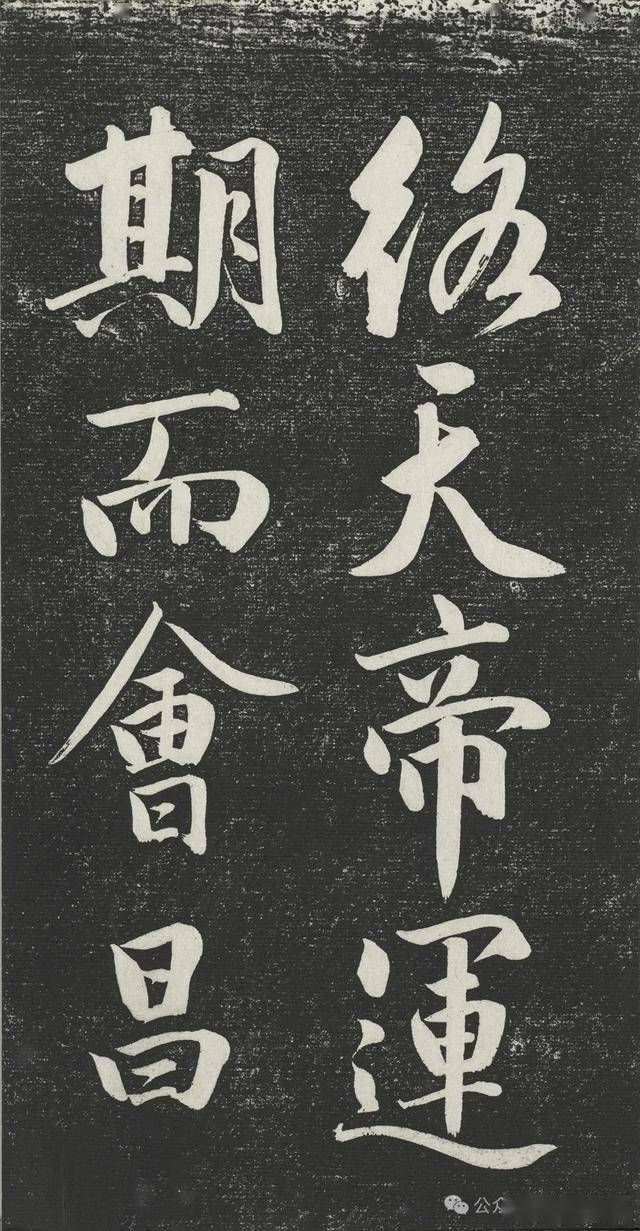 络天帝運
期而會昌
公众